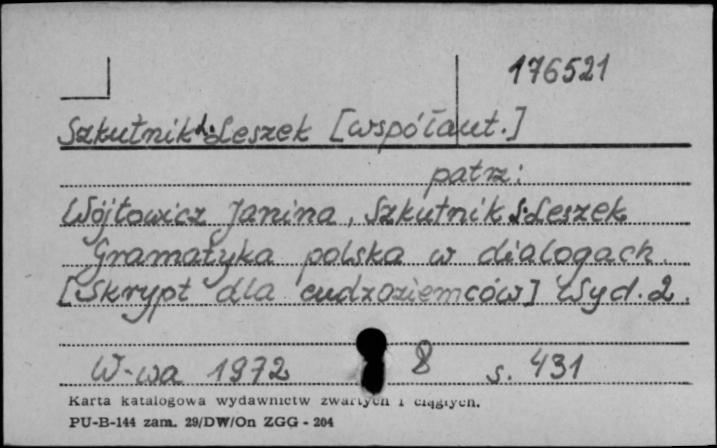 176521
Szkutnik L. Leszek [współaut.]
patrz:
Wójtowicz Janina, Szkutnik Leszek
Gramatyka polska w dialogach.
[Skrypt dla cudzoziemców] Wyd. 2.
W-wa 1972 8 s. 431
Karta katalogowa wydawnictw zwartych i ciągłych.
PU-B-144 zam. 29/DW/On ZGG - 204